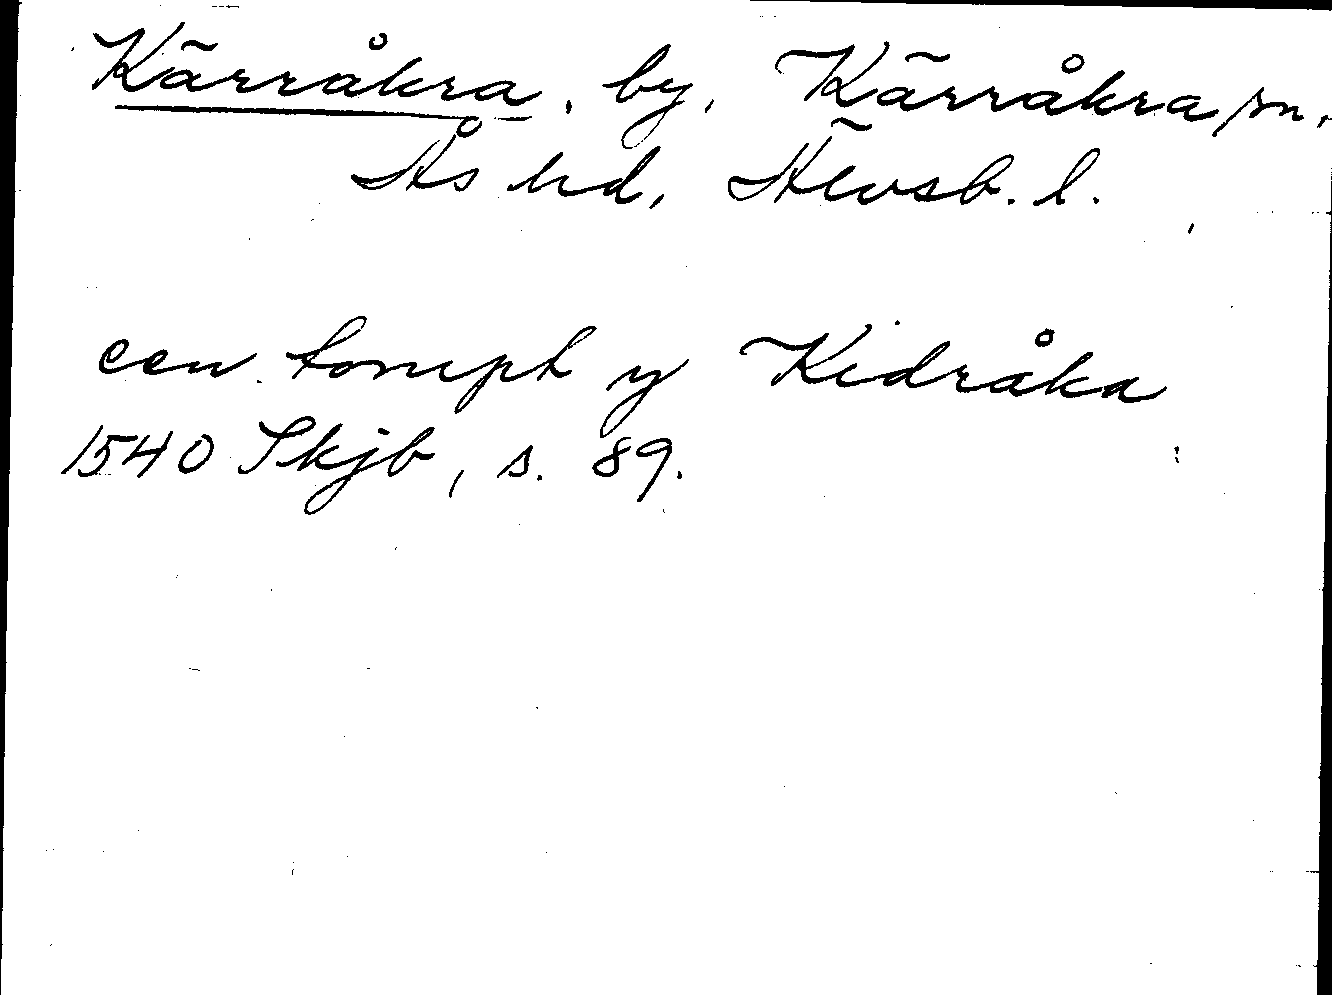 Kärråkra, by, Kärråkra sn,
Ås hd, Älvsb. l.
een tompt y Kidråka
1540 Skjb, s. 89.